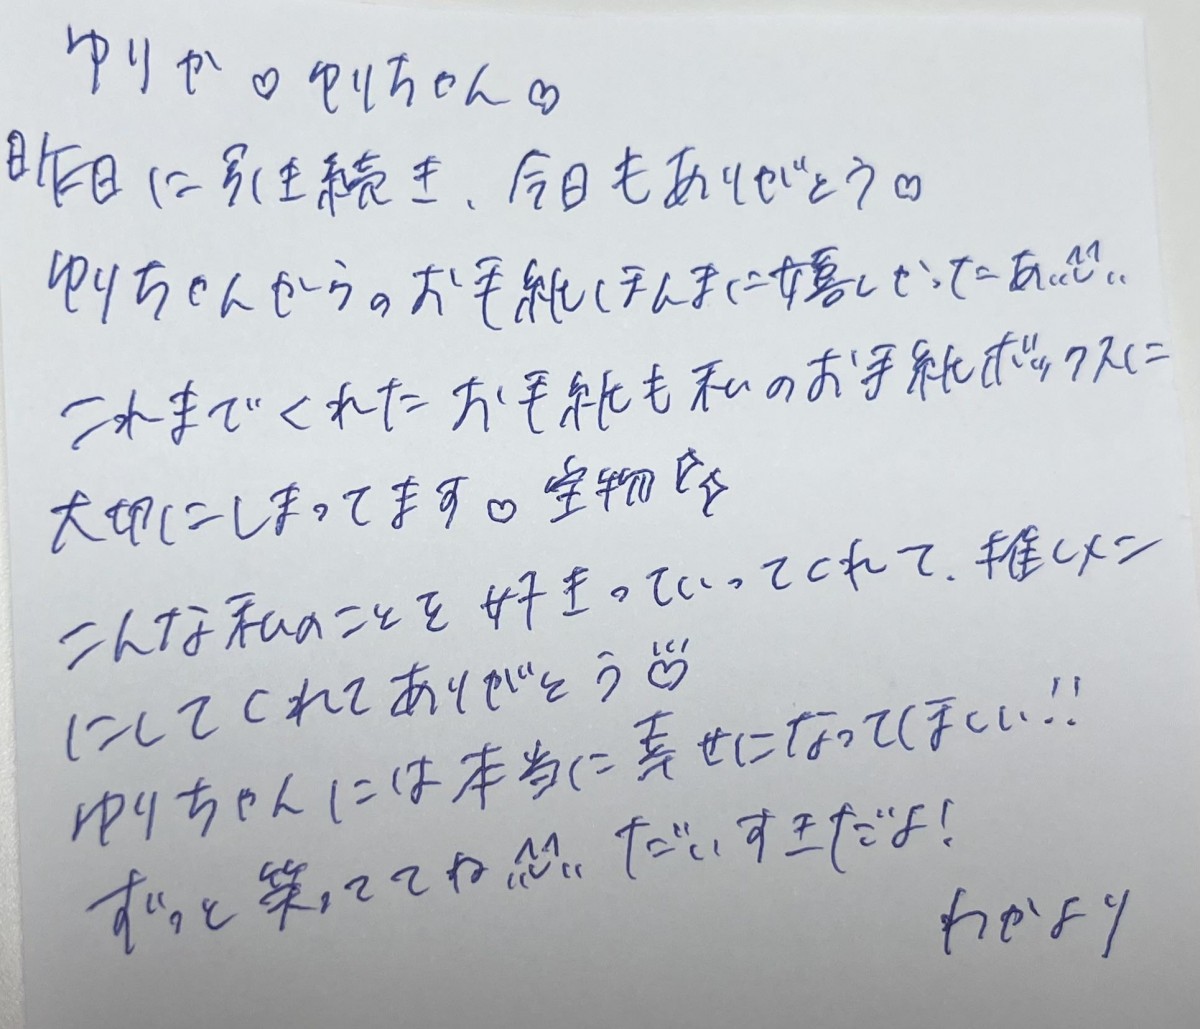 ゆりか♡ゆりちゃん♡
昨日に引き続き、今日もありがとう♡
ゆりちゃんからのお手紙ほんまに嬉しかったあ
これまでくれたお手紙も私のお手紙ボックスに
大切にしまってます♡宝物☆☆
こんな私のことを好きっていってくれて、推しメン
にしてくれてありがとう♡
ゆりちゃんには本当に幸せになってほしい!!
ずっと笑っててね だいすきだよ!
わかより